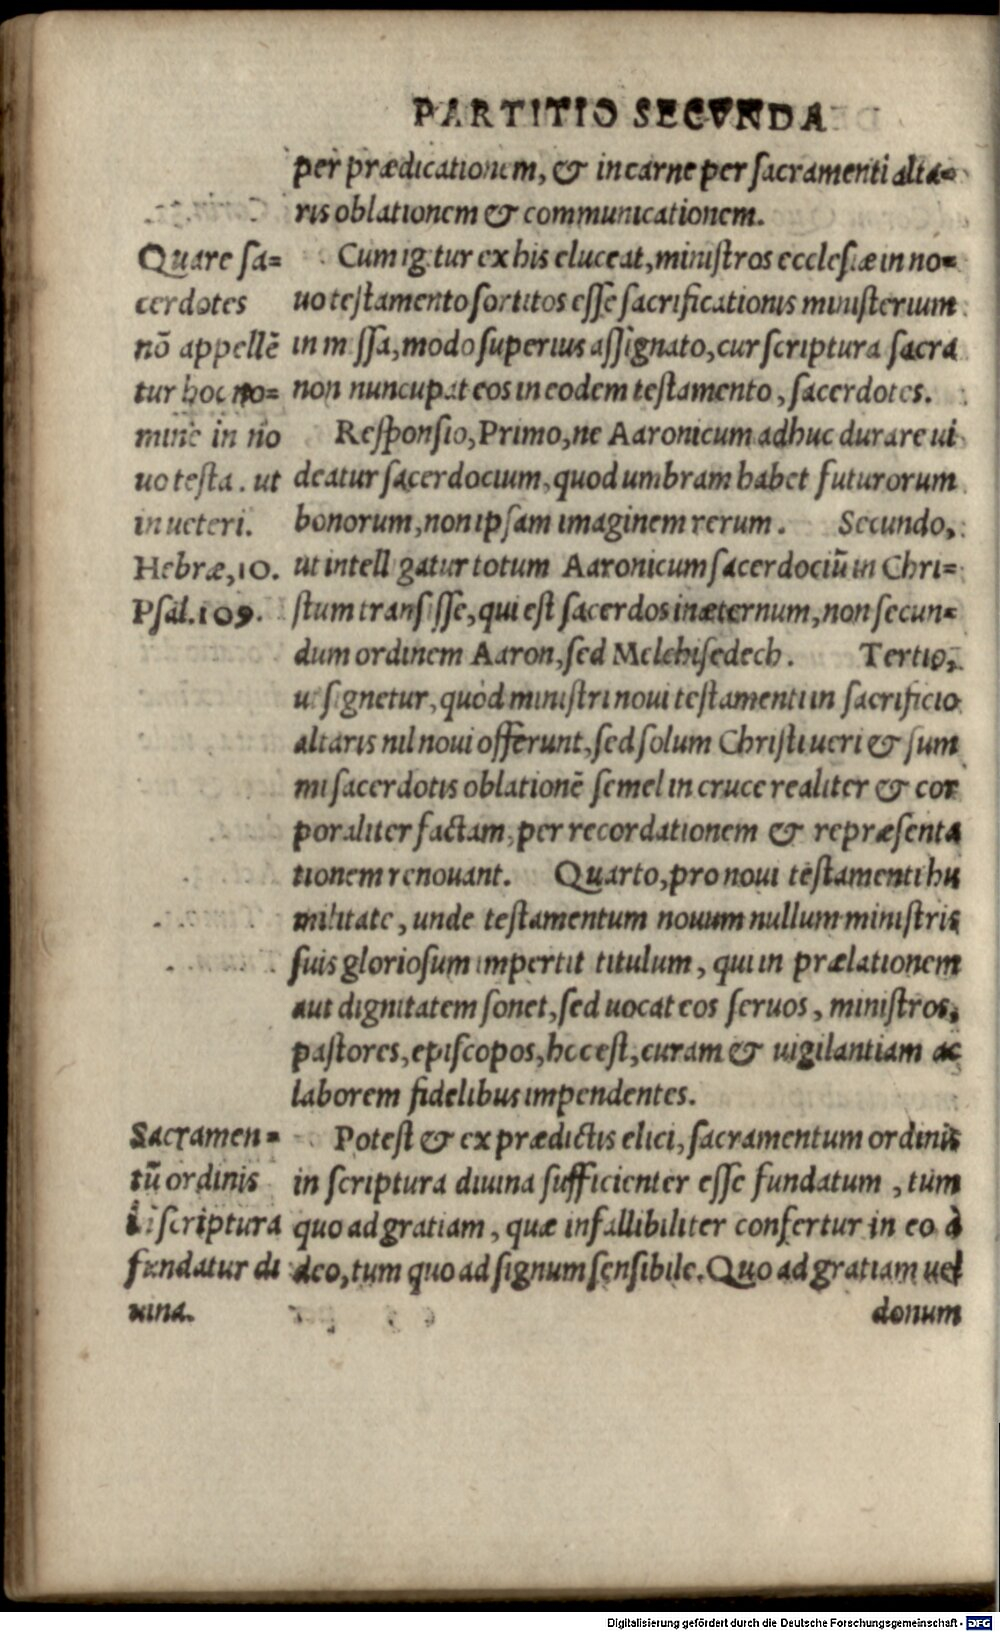 PARTITIO SECVNDA
per prædicationem, & in carne per sacramenti alta=
ris oblationem & communicationem.
Quare sa=
cerdotes
nō appellē
tur hoc no=
mine in no
uo testa. ut
in ueteri.
Hebræ, 10.
Psal. 109.
Cum igitur ex his eluceat, ministros ecclesiæ in no=
uo testamento sortitos esse sacrificationis ministerium
in missa, modo superius assignato, cur scriptura sacra
non nuncupat eos in eodem testamento, sacerdotes.
Responsio, Primo, ne Aaronicum adhuc durare ui
deatur sacerdocium, quod umbram habet futurorum
bonorum, non ipsam imaginem rerum. Secundo,
ut intelligatur totum Aaronicum sacerdociū in Chri=
stum transisse, qui est sacerdos in æternum, non secun=
dum ordinem Aaron, sed Melchisedech. Tertio,
ut signetur, quòd ministri noui testamenti in sacrificio
altaris nil noui offerunt, sed solum Christi ueri & sum
mi sacerdotis oblationē semel in cruce realiter & cor
poraliter factam, per recordationem & repræsenta
tionem renouant. Quarto, pro noui testamenti hu
militate, unde testamentum nouum nullum ministris
suis gloriosum impertit titulum, qui in prælationem
aut dignitatem sonet, sed uocat eos seruos, ministros,
pastores, episcopos, hoc est, curam & uigilantiam ac
laborem fidelibus impendentes.
Sacramen=
tū ordinis
i scriptura
fundatur di
uina.
Potest & ex prædictis elici, sacramentum ordinis
in scriptura diuina sufficienter esse fundatum, tum
quo ad gratiam, quæ infallibiliter confertur in eo à
deo, tum quo ad signum sensibile. Quo ad gratiam uel
donum
Digitalisierung gefördert durch die Deutsche Forschungsgemeinschaft - DFG